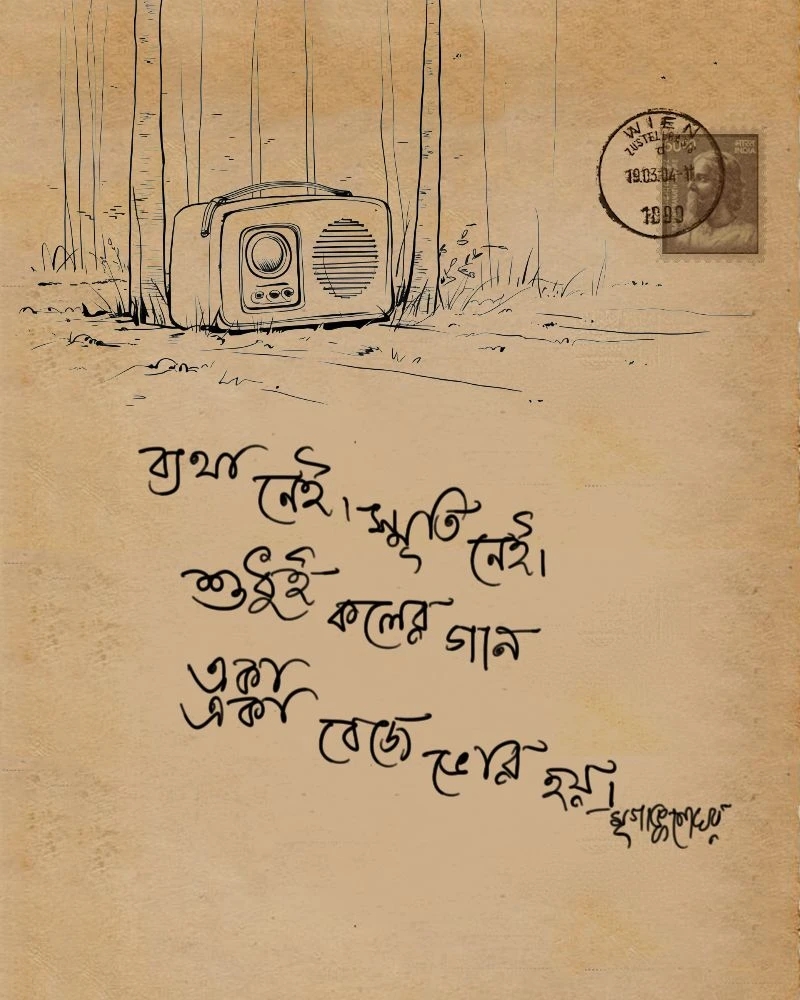 WIEN
19.03.04-11
भारत
INDIA
ব্যথা নেই। স্মৃতি নেই।
শুধুই কলের গান
একা
একা বেজে ভোর হয়।
মৃগাঙ্কশেখর